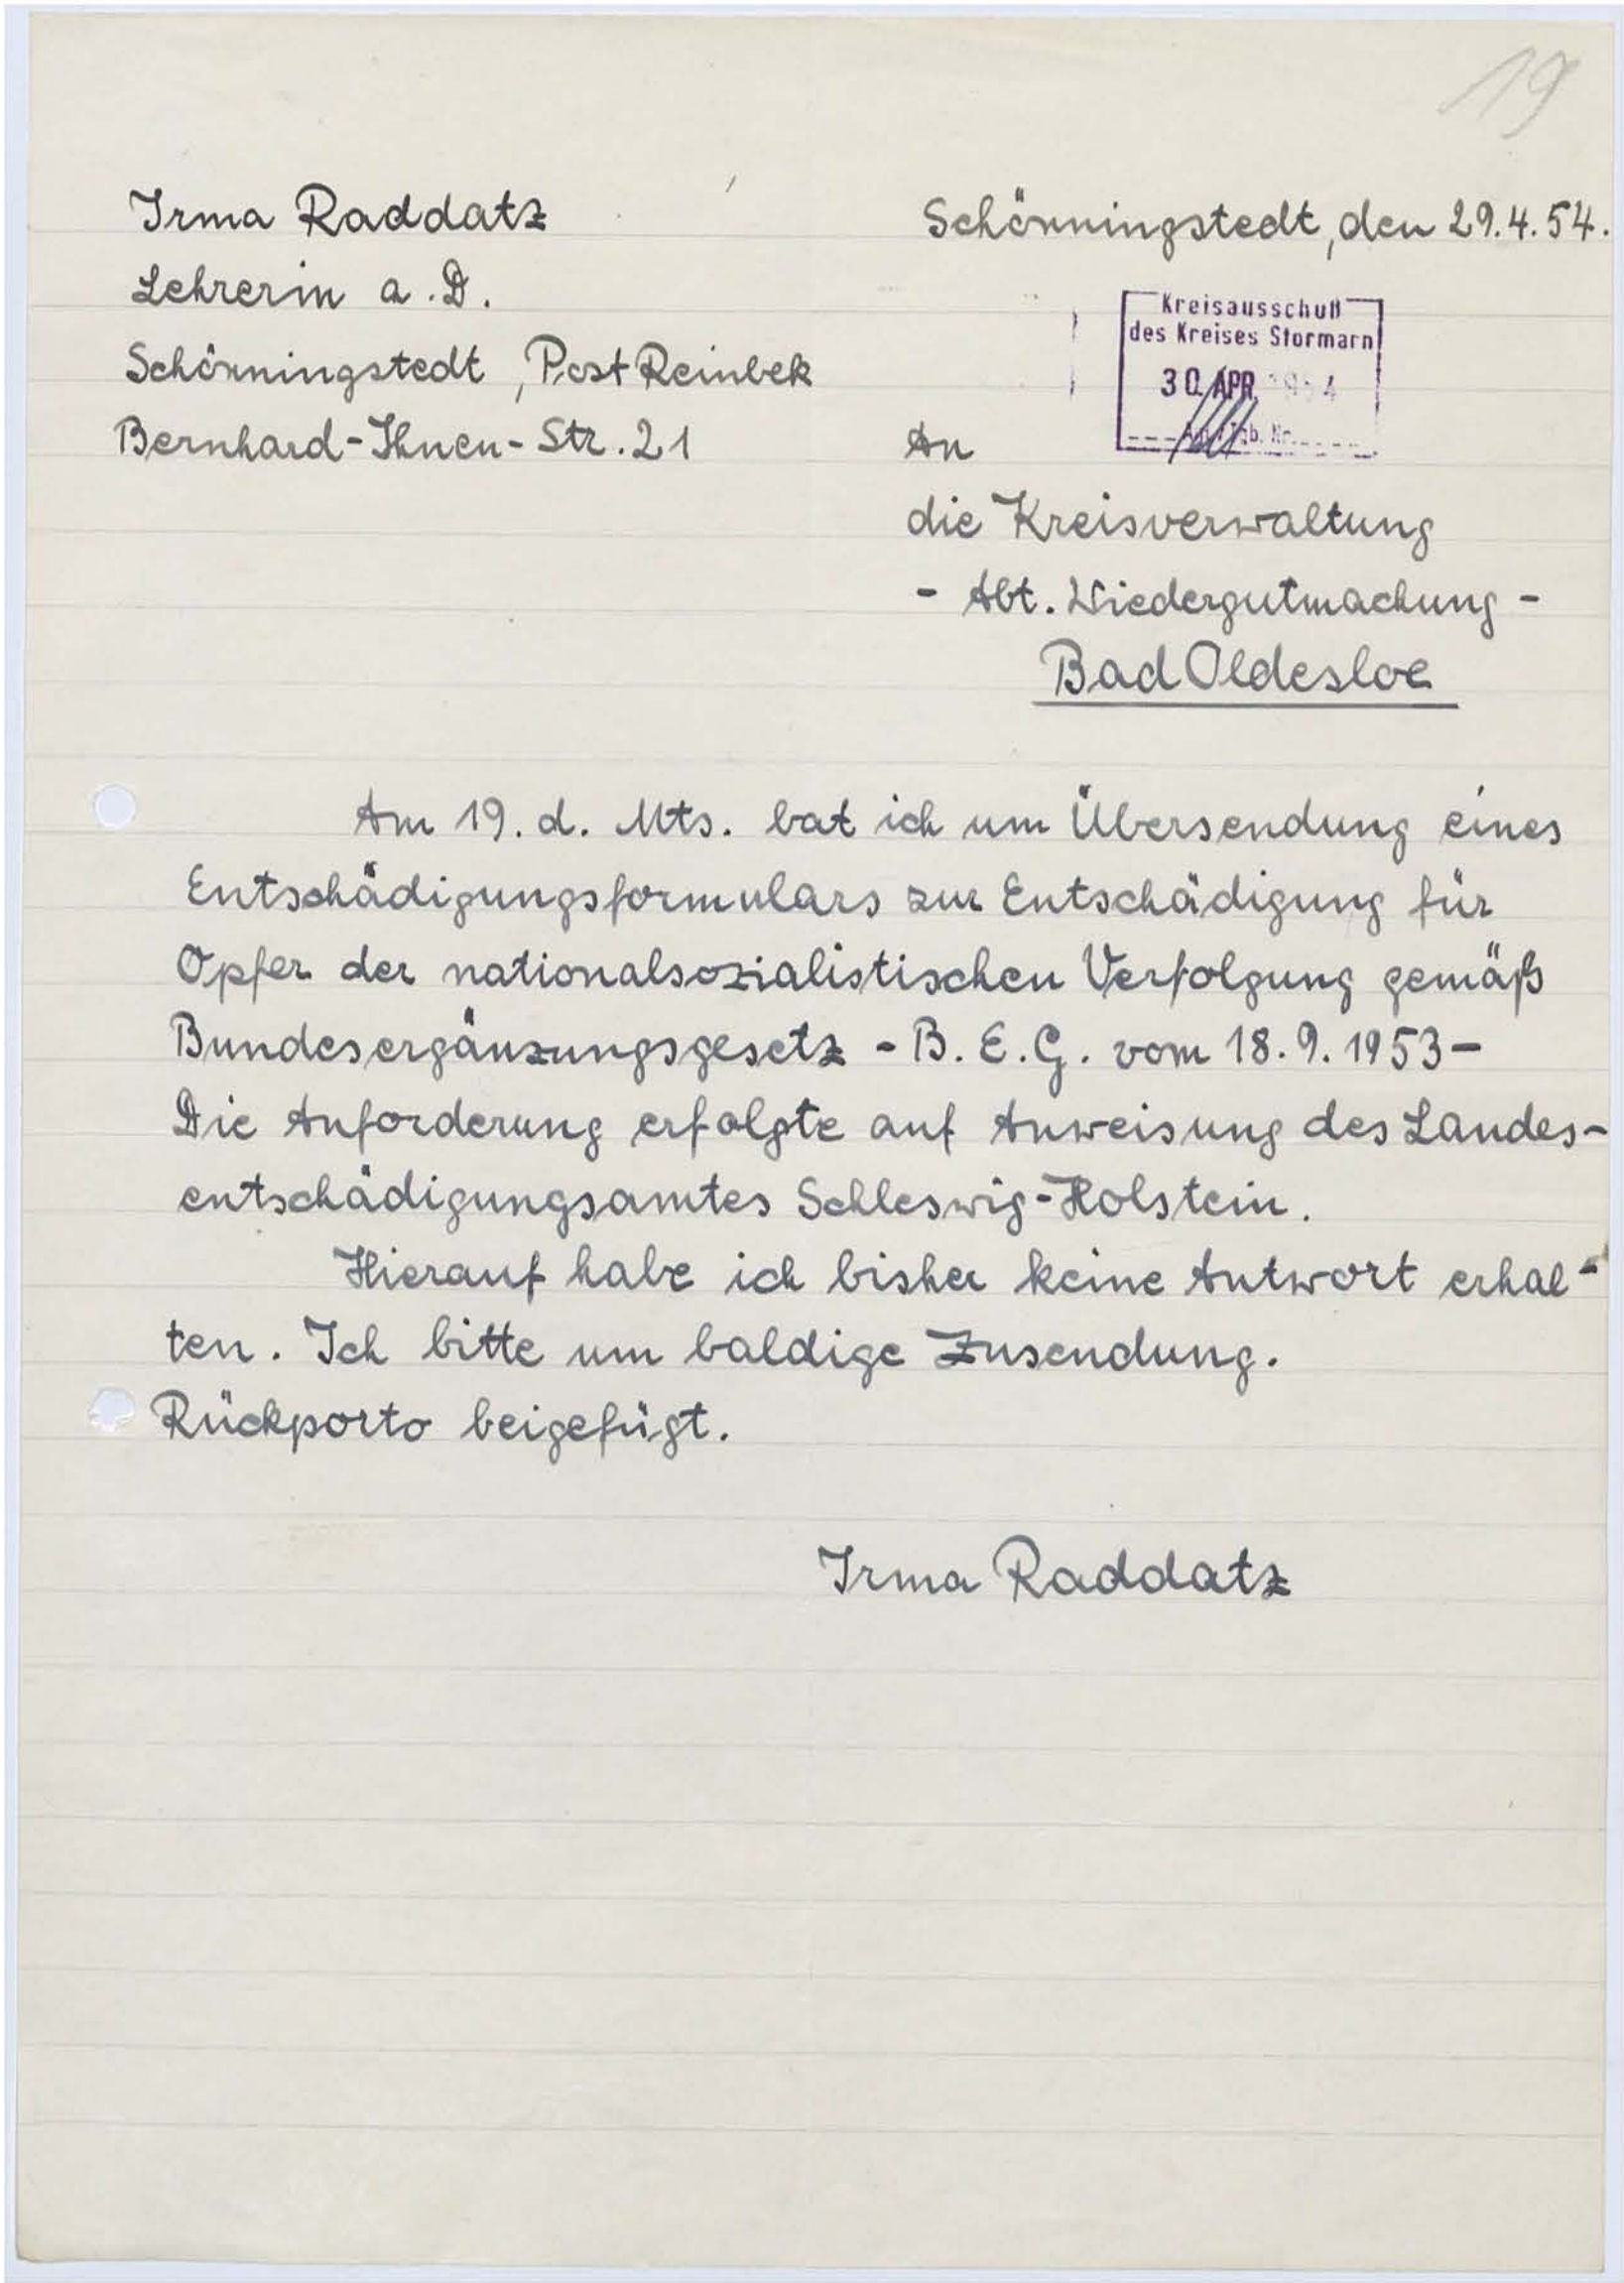 19
Irma Raddatz
Lehrerin a.D.
Schönningstedt, Post Reinbek
Bernhard-Ihnen-Str. 21
Schönningstedt, den 29.4.54.
Kreisausschuß
des Kreises Stormarn
30. APR. 1954
An
die Kreisverwaltung
- Abt. Wiedergutmachung -
Bad Oldesloe
Am 19. d. Mts. bat ich um Übersendung eines
Entschädigungsformulars zur Entschädigung für
Opfer der nationalsozialistischen Verfolgung gemäß
Bundesergänzungsgesetz - B.E.G. vom 18.9.1953-
Die Anforderung erfolgte auf Anweisung des Landes-
entschädigungsamtes Schleswig-Holstein.
Hierauf habe ich bisher keine Antwort erhal-
ten. Ich bitte um baldige Zusendung.
Rückporto beigefügt.
Irma Raddatz